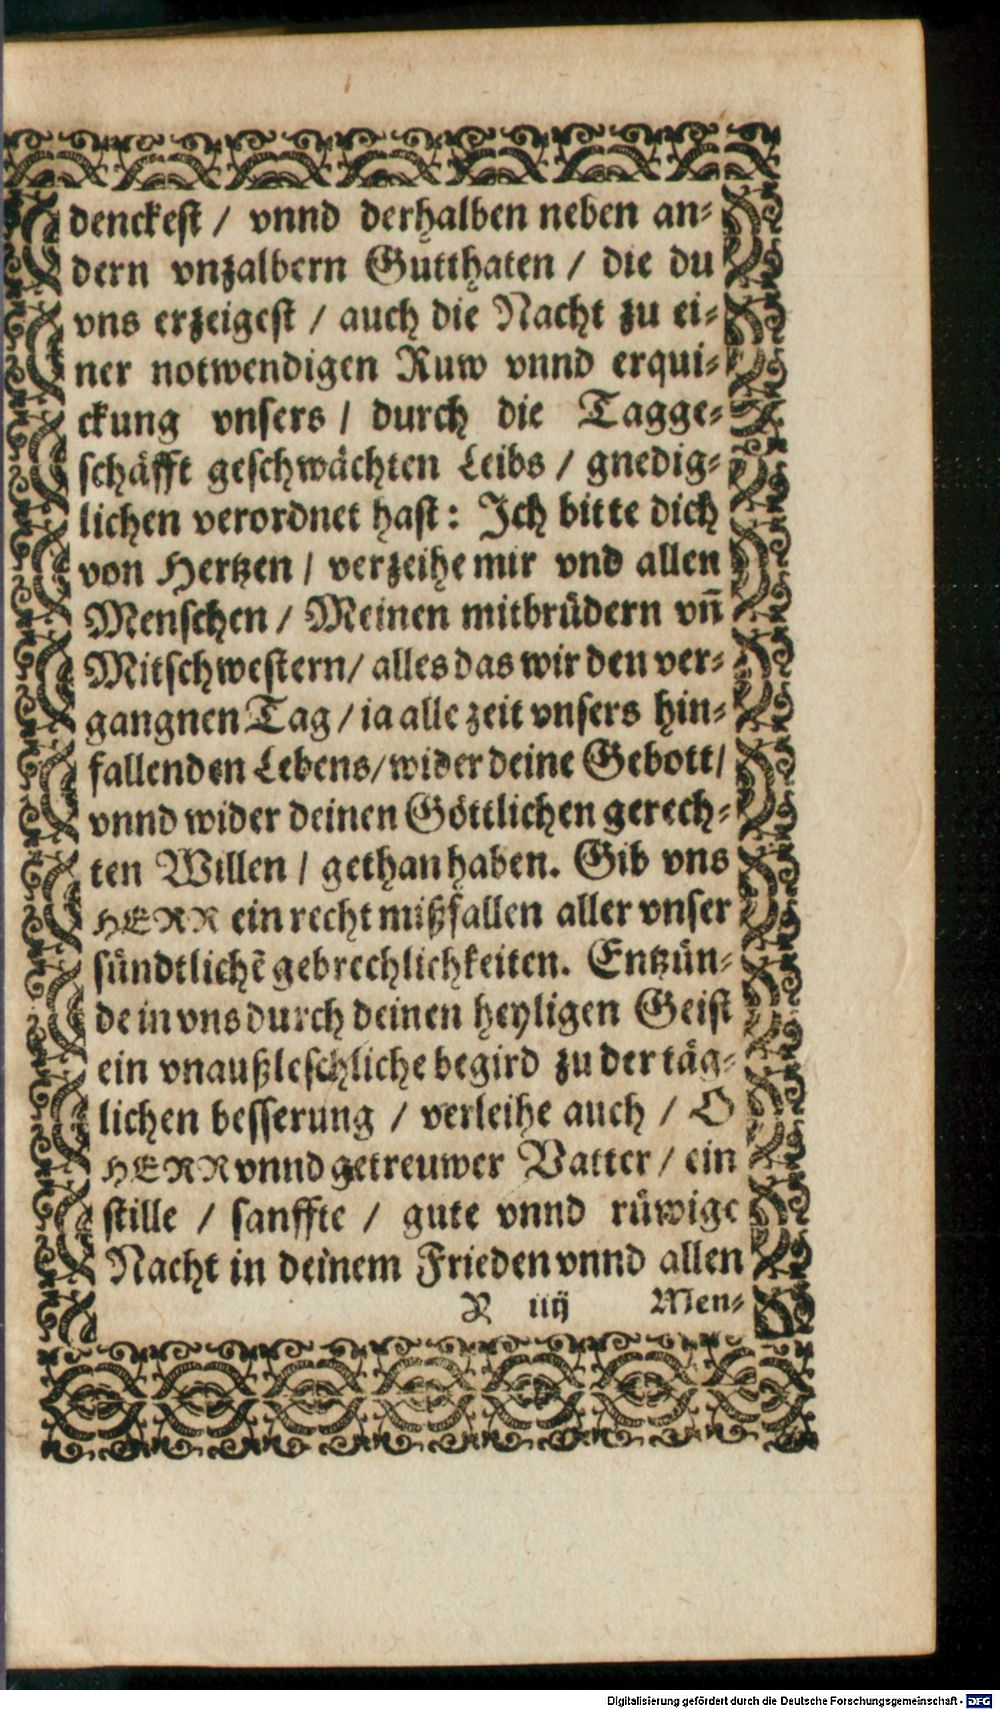 denckest / vnnd derhalben neben an⸗
dern vnzalbern Gutthaten / die du
vns erzeigest / auch die Nacht zu ei⸗
ner notwendigen Ruw vnnd erqui⸗
ckung vnsers / durch die Tagge⸗
schäfft geschwächten Leibs / gnedig⸗
lichen verordnet hast: Ich bitte dich
von Hertzen / verzeihe mir vnd allen
Menschen / Meinen mitbrüdern vn̄
Mitschwestern / alles das wir den ver⸗
gangnen Tag / ia alle zeit vnsers hin⸗
fallenden Lebens / wider deine Gebott /
vnnd wider deinen Göttlichen gerech⸗
ten Willen / gethan haben. Gib vns
HERR ein recht mißfallen aller vnser
sündtlichē gebrechlichkeiten. Entzün⸗
de in vns durch deinen heyligen Geist
ein vnaußleschliche begird zu der täg⸗
lichen besserung / verleihe auch / O
HERR vnnd getreuwer Vatter / ein
stille / sanffte / gute vnnd rüwige
Nacht in deinem Frieden vnnd allen
R iiij Men⸗
Digitalisierung gefördert durch die Deutsche Forschungsgemeinschaft - DFG